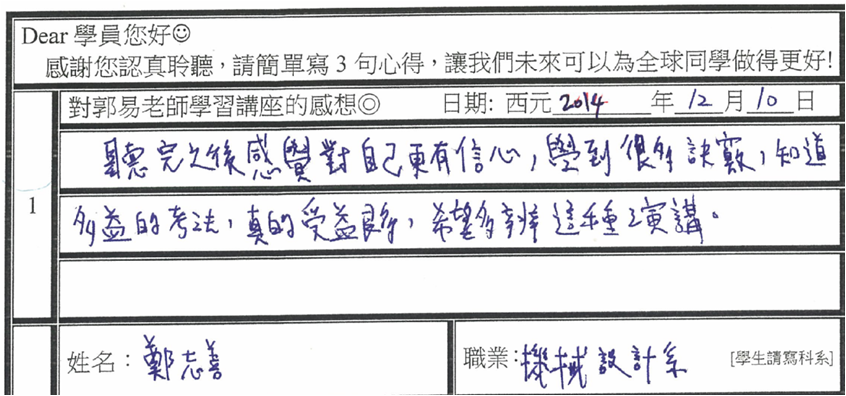 Dear 學員您好☺
感謝您認真聆聽，請簡單寫 3 句心得，讓我們未來可以為全球同學做得更好!
對郭易老師學習講座的感想◎ 日期: 西元 2014 年 12 月 10 日
1
聽完之後感覺對自己更有信心，學到很多訣竅，知道
多益的考法，真的受益良多，希望多辦這種演講。
姓名：鄭志善
職業：機械設計系 [學生請寫科系]